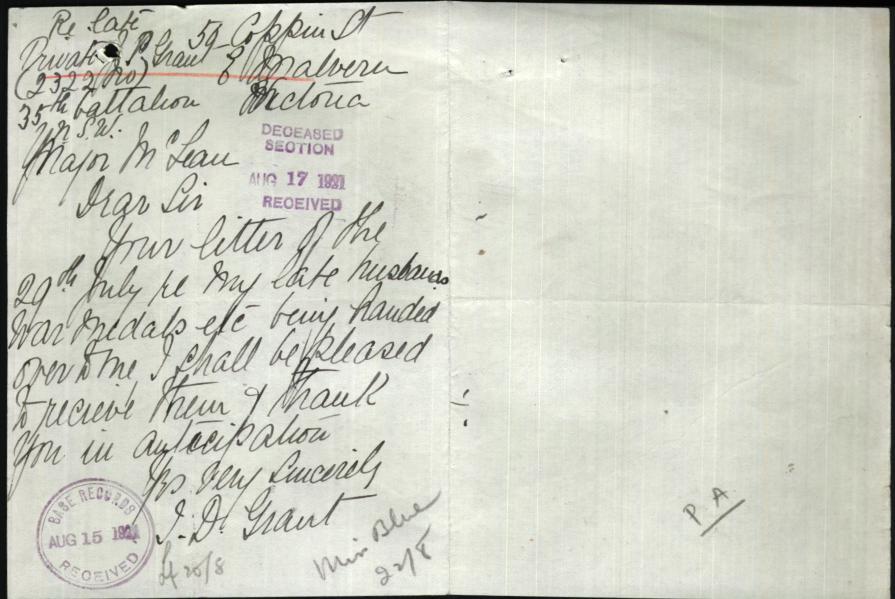 Re late
Private P Grant 59 Coppin St
(2322 No) E Malvern
35th battalion Victoria
N.S.W.
Major McLean
DECEASED
SECTION
AUG 17 1921
RECEIVED
Dear Sir
Your letter of the
29th July re my late husbands
War Medals etc being handed
over to me I shall be pleased
to recieve them & thank
you in anticipation
Yrs Very Sincerely
J. D. Grant
BASE RECORDS
AUG 15 1921
RECEIVED
20/8
Miss Blue
22/8
P A